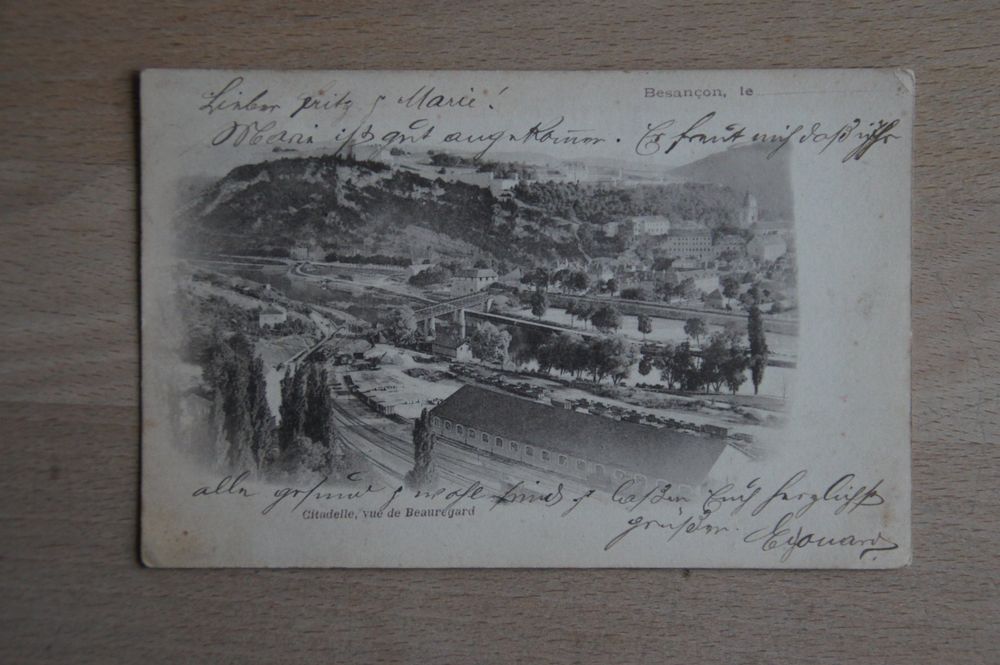 Besançon, le
Lieber Fritz & Marie!
Marie ist gut angekommen. Es freut mich daß ihr
alle gesund & wohl sind & laßen Euch herzlichst
Citadelle, vue de Beauregard
grüßen. Edouard